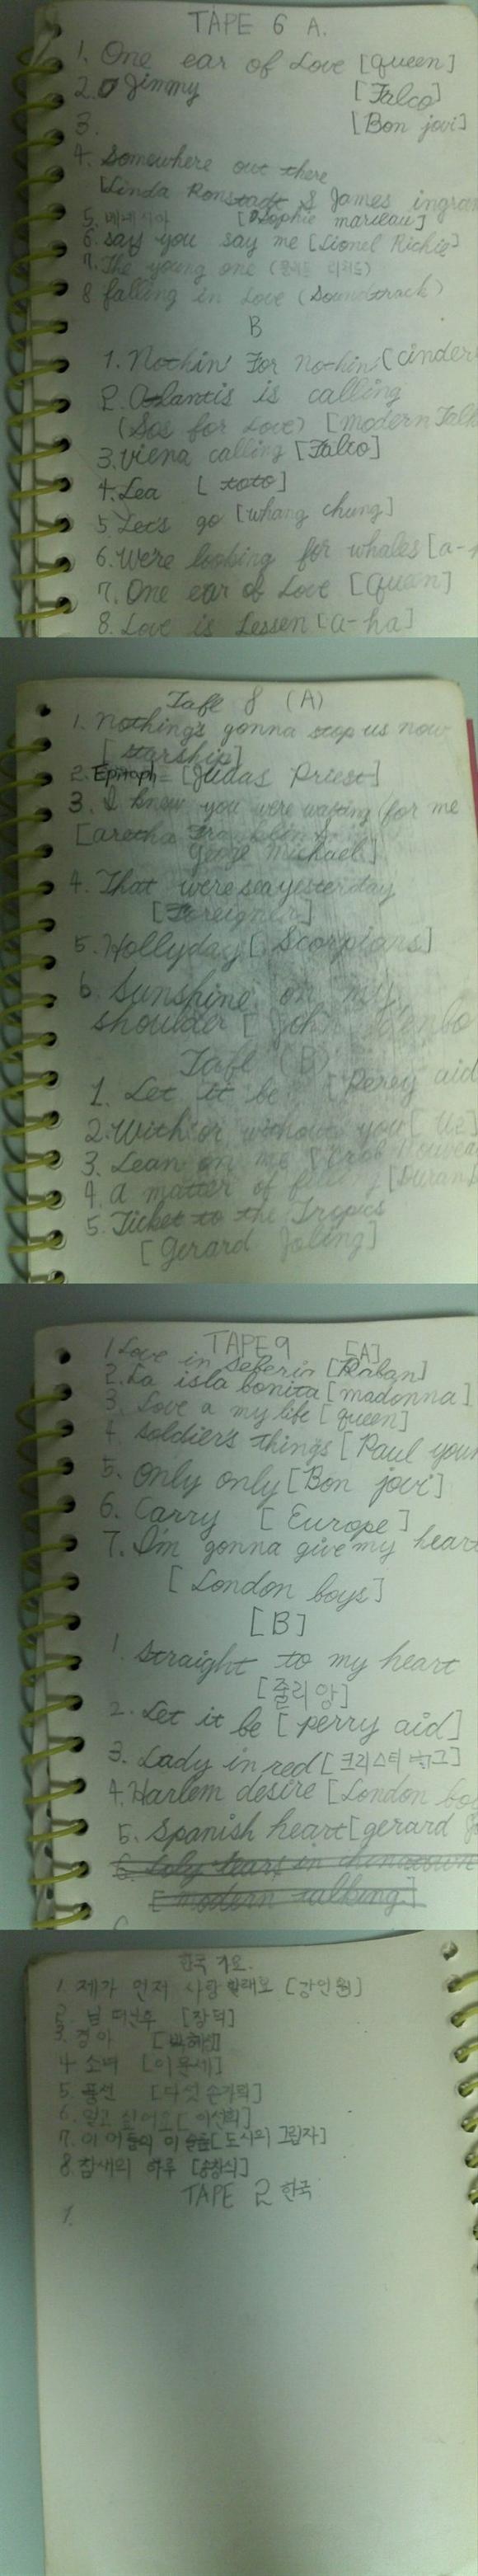 TAPE 6 A.
1. One ear of Love [queen]
2. Jimmy [Falco]
3. [Bon jovi]
4. Somewhere out there
[Linda Ronstadt & James ingram
5. [Sophie marceau]
6. say you say me [Lionel Richie]
7. The young one (클리프 리차드)
8 falling in Love (Soundtrack)
B
1. Nothin' For Nothin (cinder
2. Atlantis is calling
(Sos for Love) [modern Talk
3. Viena calling [Falco]
4. Lea [toto]
5 Let's go [whang chung]
6. Were looking for whales [a-h
7. One ear of Love [queen]
8. Love is Lessen [a-ha]
Tafe 8 (A)
1. nothing's gonna stop us now
[starship]
2. Epitaph [Judas Priest]
3. I knew you were waiting (for me
[aretha Franklin
George Michael]
4. That were sea yesterday
[Foreigner]
5. Hollyday [Scorpions]
6. Sunshine on my
shoulder [John Denbo
Tafe (B)
1. Let it be [Perry aid
2. With or without you [U2]
3. Lean on me [Club Nouvea
4. a matter of feeling [Duran
5. Ticket to the Tropics
[Gerard Joling]
TAPE 9 [A]
1 Love in Seberia [Laban]
2. La isla bonita [madonna]
3. Love a my life [queen]
4. Soldier's things [Paul youn
5. Only only [Bon jovi]
6. Carry [Europe]
7. I'm gonna give my heart
[London boys]
[B]
1. Straight to my heart
[줄리앙]
2. Let it be [perry aid]
3. Lady in red [크리스티 버그]
4. Harlem desire [London bo
5. Spanish heart [gerard Jo
6. Loly tears in chinatown
[modern talking]
한국 가요.
1. 제가 먼저 사랑 할래요 [강인원]
2. 님 떠난후 [장덕]
3. 경아 [박혜성]
4. 소녀 [이문세]
5. 풍선 [다섯 손가락]
6. 알고 싶어요 [이선희]
7. 이 어둠의 이 슬픔 [도시의 그림자]
8. 참새의 하루 [송창식]
TAPE 2 한국
1.